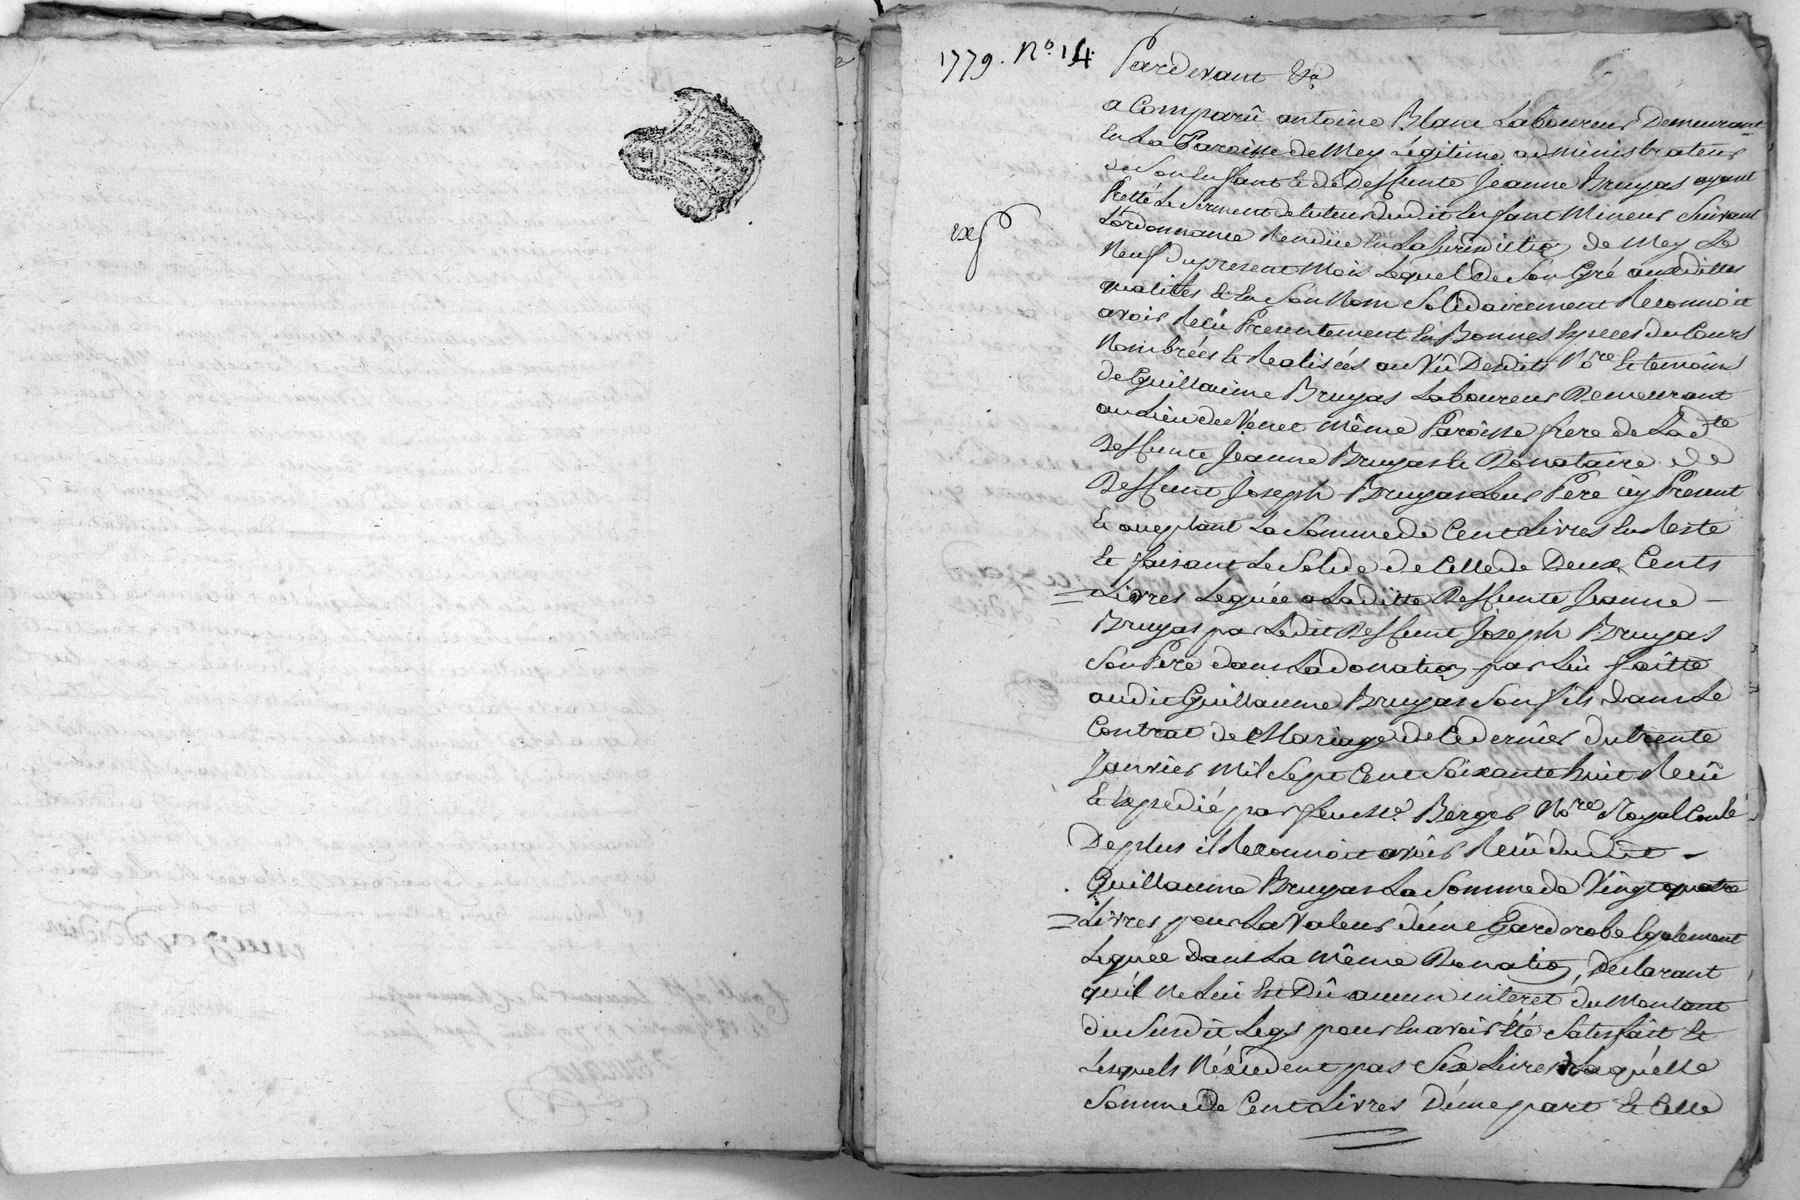 1779. N.º 14
Pardevant &a
a Comparû antoine Blanc Laboureur Demeurant
En La Paroisse de Mey Legitime administrateur
de Son Enfant Et de Deffunte Jeanne Bruyas ayant
Pretté Le Serment de tuteur dudit Enfant Mineur Suivant
L'ordonnance Rendüe En La Jurisdiction de Mey Le
exp
Neuf du present Mois Lequel de Son Gré auxdittes
qualités Et En Son Nom Solidairement Reconnoit
avoir Reçû Presentement En Bonnes Especes du Cours
Nombrées Et Realisées au Vû Desdits Nore Et temoins
de Guillaume Bruyas Laboureur Demeurant
au Lieu de Venet même Paroisse frere de Ladte
Deffunte Jeanne Bruyas Et Donataire de
Deffunt Joseph Bruyas Leur Père icy Present
Et acceptant La Somme de Cent Livres En Reste
Et faisant Le Solde de Celle de Deux Cents
Livres Leguée a Laditte Deffunte Jeanne
Bruyas par Ledit Deffunt Joseph Bruyas
Son Pere dans La donation par Lui faitte
audit Guillaume Bruyas Son fils dans Le
Contrat de Mariage de Ce dernier du trente
Janvier Mil Sept Cent Soixante huit Reçû
Et Expedié par feu Me Berger Nore Royal Conlé
De plus il Reconnoit avoir Reçû dudit
Guillaume Bruyas La Somme de Vingt quatre
Livres pour La Valeur d'une Garderobe Egalement
Leguée Dans La même Donation, Declarant
qu'il Ne Lui Est Dû aucun interet du Montant
du Susdit Legs pour En avoir Eté Satisfait Et
Lesquels N'éxcedent pas Six Livres Laquelle
Somme de Cent Livres D'une part Et Celle